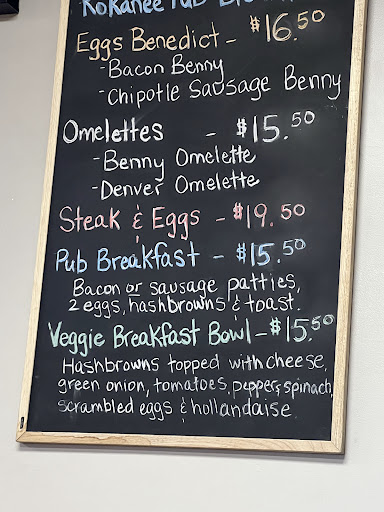 Kokanee Pub
Eggs Benedict - $16.50
- Bacon Benny
- Chipotle Sausage Benny
Omelettes - $15.50
- Benny Omelette
- Denver Omelette
Steak & Eggs - $19.50
Pub Breakfast - $15.50
Bacon or sausage patties,
2 eggs, hashbrowns & toast.
Veggie Breakfast Bowl - $15.50
Hashbrowns topped with cheese,
green onion, tomatoes, peppers, spinach,
scrambled eggs & hollandaise